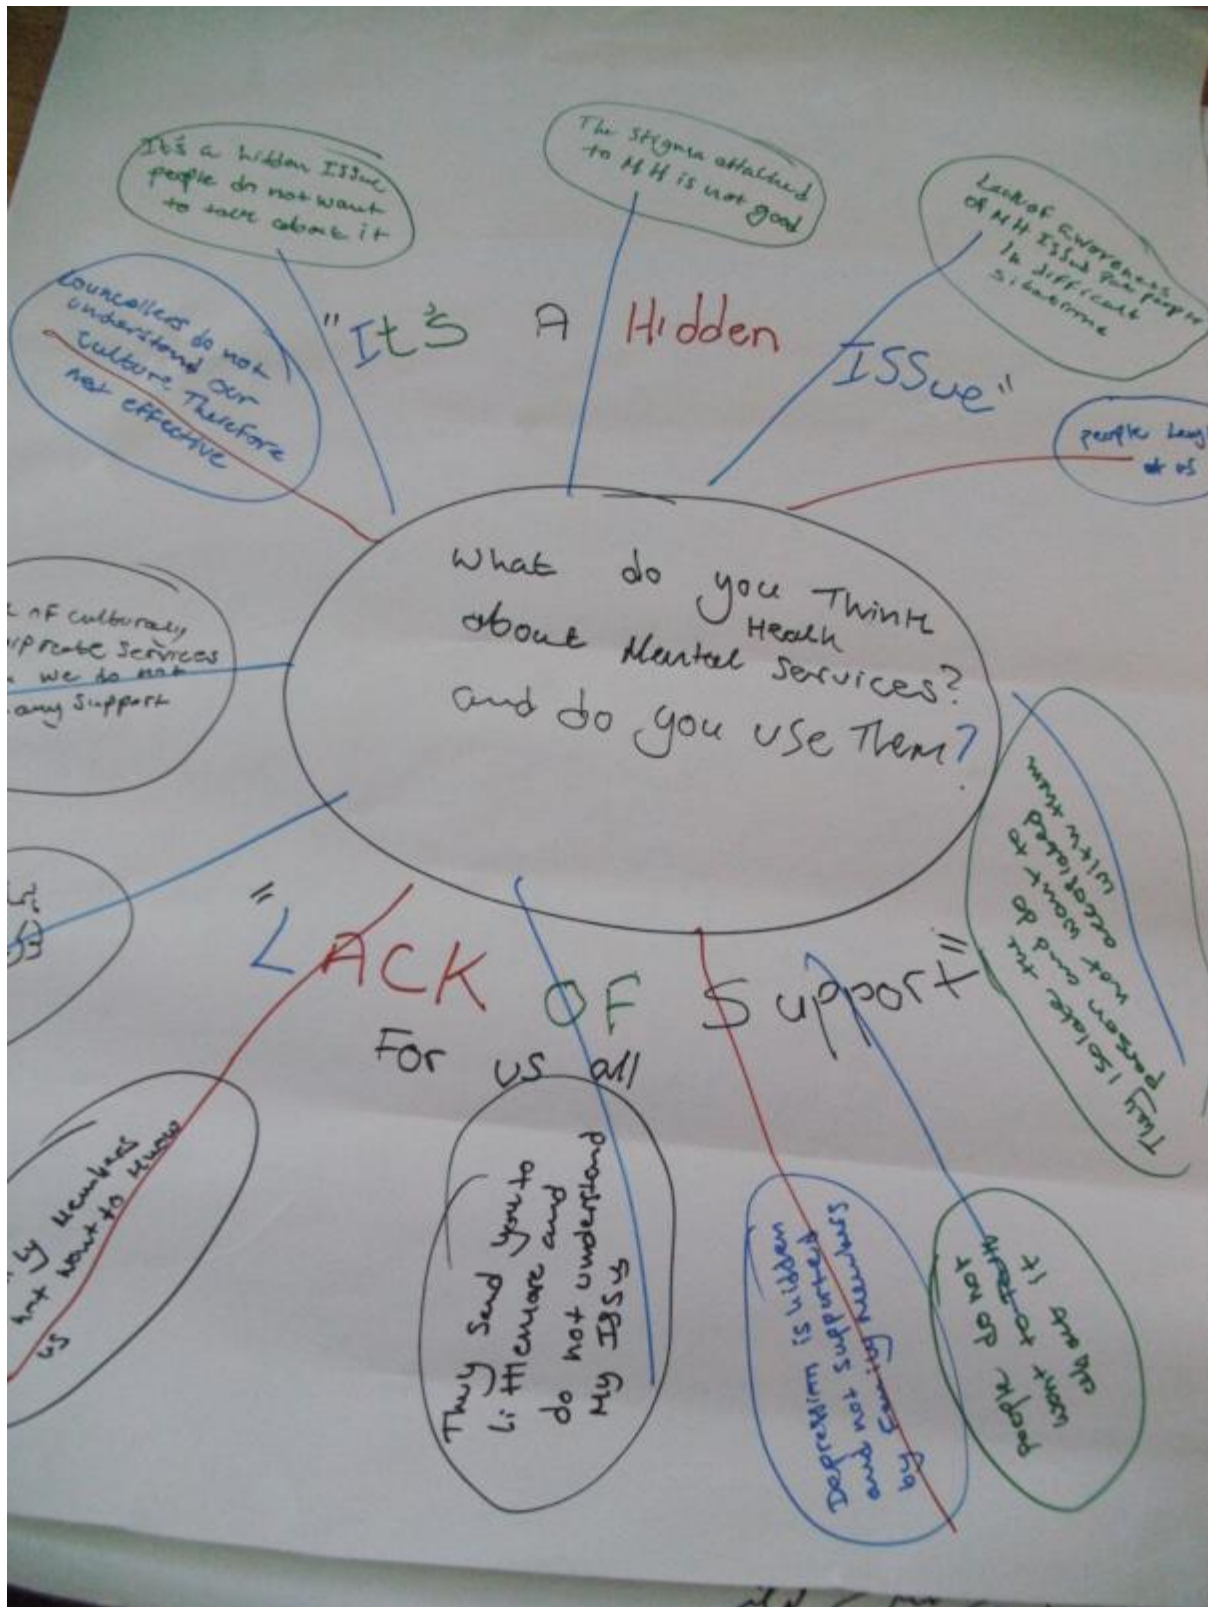 It's a hidden ISSue
people do not want
to talk about it
The Stigma attached
to MH is not good
Lack of awareness
of MH ISSus for people
In difficult
situations
Councellers do not
understand our
culture Therefore
not effective
"It's A Hidden ISSue"
people laugh
at us
What do you Think
about Mental Health Services?
and do you use Them?
of culturaly
services
we do not
any Support
They isolate the
person and do
not want to
associated
with them
"LACK OF Support"
For us all
Members
not want to know
us
They Send you to
Littlemore and
do not understand
My ISSus
Depression is hidden
and not supported
by Family Members
people do not
want to talk
about it